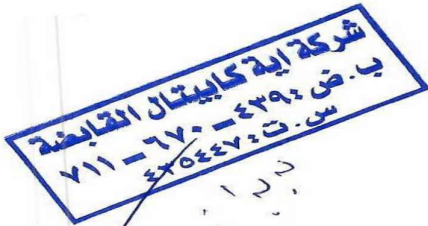 شركة اية كابيتال القابضة
ب. ض : ٤٣٩ - ٦٧٠ - ٧١١
س. ت : ٤٣٥٤٤٧